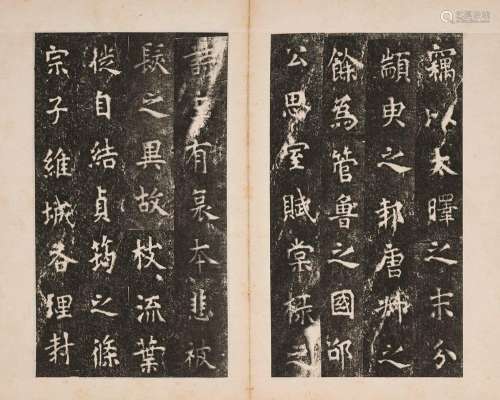 竊以太暐之末分
顓臾之邦唐叔之
餘為管魯之國邵
公思室賦棠棣之
詩又有哀本悲被
髮之異故枝流葉
從自結貞筠之條
宗子維城各理封